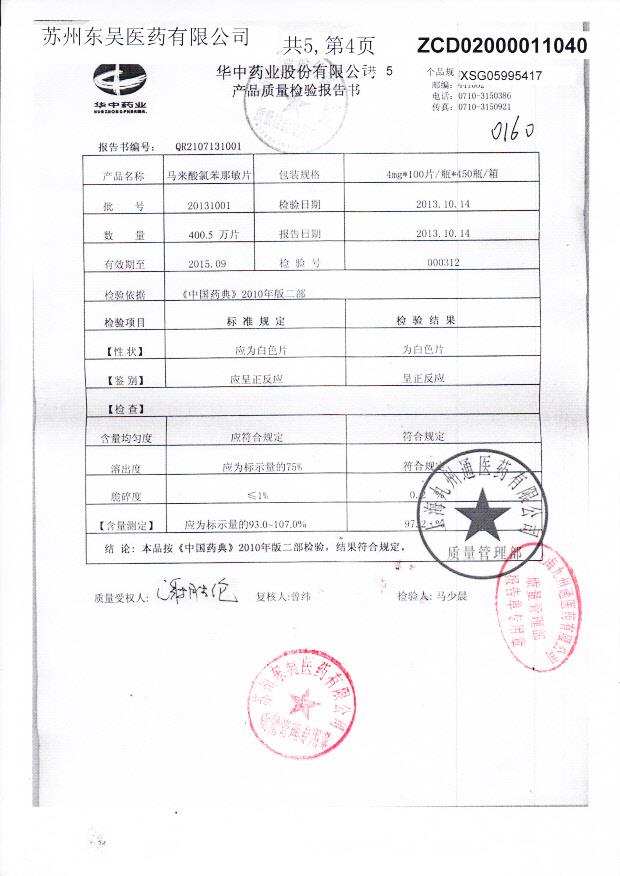 苏州东吴医药有限公司 共5,第4页 ZCD02000011040
华中药业股份有限公司 共 5 个品规 XSG05995417
产品质量检验报告书
邮编: 441002
电话: 0710-3150386
传真: 0710-3150921
华中药业
HUAZHONG PHARMA.
0160
报告书编号: QR2107131001
产品名称 马来酸氯苯那敏片 包装规格 4mg*100片/瓶*450瓶/箱
批 号 20131001 检验日期 2013.10.14
数 量 400.5 万片 报告日期 2013.10.14
有效期至 2015.09 检 验 号 000312
检验依据 《中国药典》2010年版二部
检验项目 标 准 规 定 检 验 结 果
【性 状】 应为白色片 为白色片
【鉴 别】 应呈正反应 呈正反应
【检 查】
含量均匀度 应符合规定 符合规定
溶出度 应为标示量的75% 符合规
脆碎度 ≤1% 0.
【含量测定】 应为标示量的93.0~107.0% 97.
结 论: 本品按《中国药典》2010年版二部检验, 结果符合规定。
上海九州通医药有限公司
质量管理部
质量受权人: 复核人:曾纬 检验人: 马少晨
上海九州通医药有限公司
质量管理部
报告单专用章
苏州东吴医药有限公司
质量管理专用章